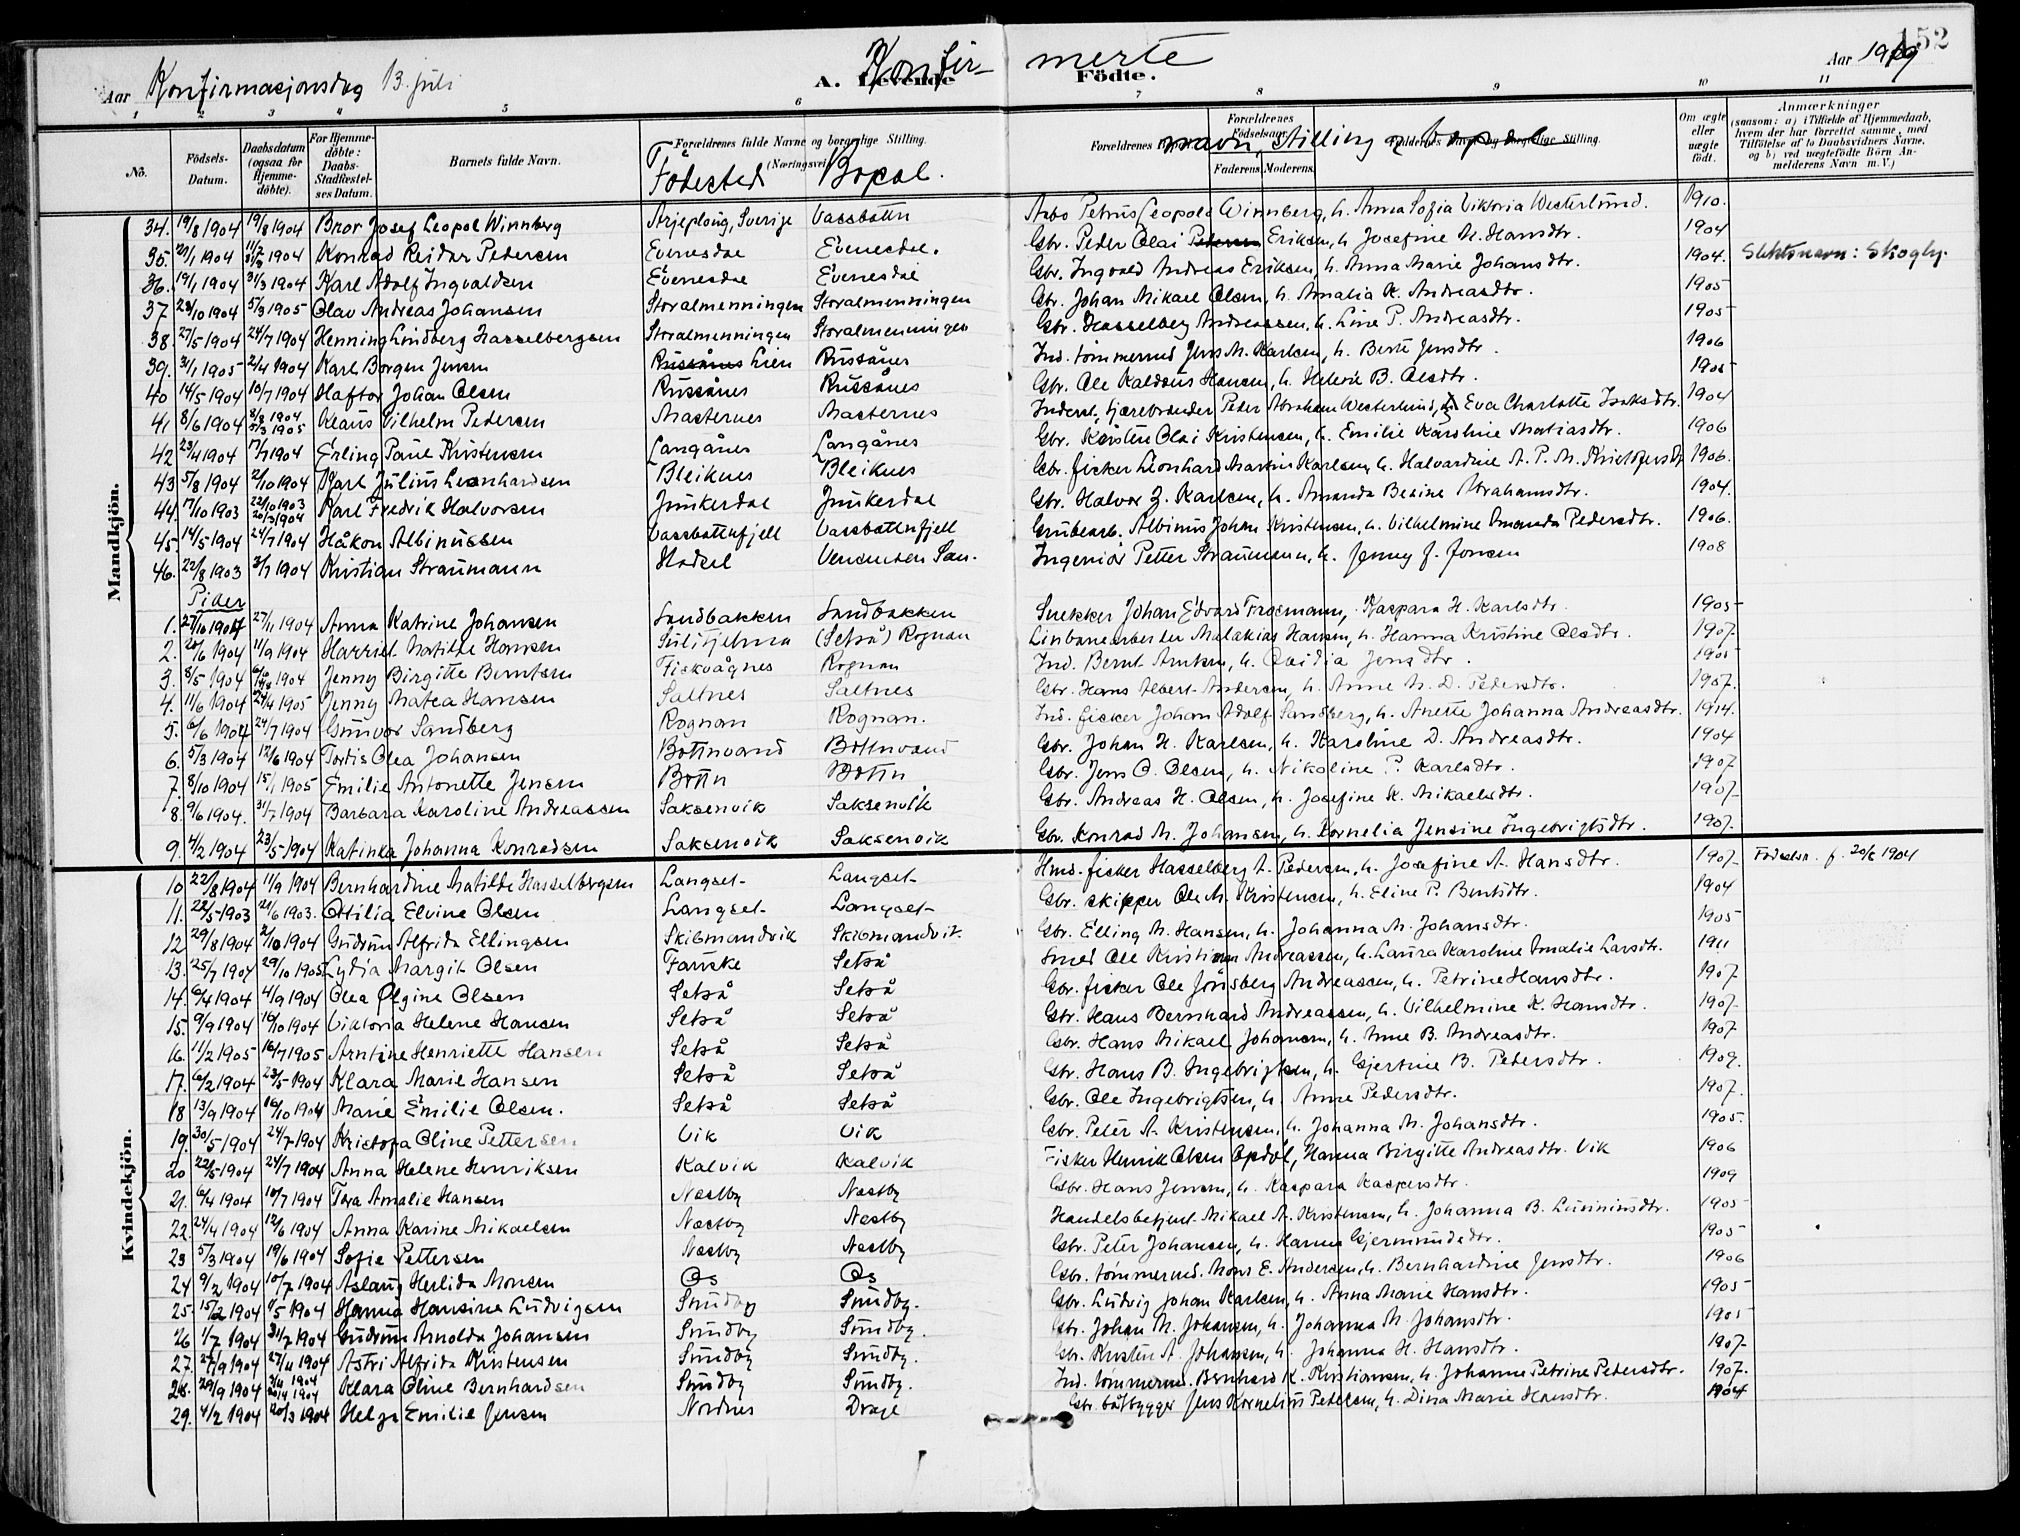 152
Konfir- merte
Aar Konfirmasjonsdag 13. juli A. Levende Födte. Aar 1919
1 2 3 4 5 6 7 8 9 10 11
No. Födsels-Datum. Daabsdatum (ogsaa for Hjemme-döbte). For Hjemme-döbte: Daabs-Stadfestel-ses Datum. Barnets fulde Navn. Forældrenes fulde Navne og borgerlige Stilling. (Næringsvei) Födested Bopæl. Forældrenes navn, stilling og bopæl Forældrenes Födselsaar. Faderens. Moderens. Om ægte eller uægte födt. Anmærkninger (saasom: a) i Tilfælde af Hjemmedaab, hvem der har forrettet samme, med Tilföielse af to Daabsvidners Navne, og b) ved uægtefödte Börn An-melderens Navn m. V.)
Mandkjön.
34. 19/8 1904 19/8 1904 Bror Josef Leopol Winnberg Arjeploug, Sverige Vassbotten Arb. Petrus Leopold Winnberg, h. Anna Sofia Viktoria Westerlund. 1910.
35. 20/1 1904 1904 Konrad Reidar Pedersen Evenesdae Evenesdae. Gbr. Peder Olai Pedersen Eriksen, h. Josefine M. Hansdtr. 1904
36. 19/1 1904 31/3 1904 Karl Adolf Ingvaldsen Evenesdae Evenesdae Gbr. Ingvald Andreas Eriksen, h. Anna Marie Johansdtr. 1904. Slektsnavn: Skogly.
37 23/10 1904 5/3 1905 Olav Andreas Johansen Storalmenningen Storalmenningen Gbr. Johan Mikael Olsen, h. Amalia K. Andreasdtr. 1905
38. 27/5 1904 24/7 1904 Henning Lindberg Hasselbergsen Storalmenningen Storalmenningen Gbr. Hasselberg Andreassen, h. Line P. Andreasdtr. 1905
39. 3/1 1905 2/4 1904 Karl Borgen Jensen Russånes Lien Russånes Ind. tömmermd Jens M. Karlsen, h. Berte Jensdtr. 1906
40 14/5 1904 10/7 1904 Haftor Johan Olsen Russånes Russånes Gbr. Ole Kaldæus Hansen, h. Helene B. Olsdtr. 1905
41 8/6 1904 8/9 1904 5/3 1905 Klaus Vilhelm Pedersen Masternes Masternes Inderst, tjærebrænder Peder Abraham Westerlund, h. Eva Charlotte Isaksdtr. 1904
42 23/4 1904 17/7 1904 Erling Paul Kristensen Langånes Langånes Gbr. Kristen Olai Kristensen, h. Emilie Karoline Matiasdtr. 1906
43 5/8 1904 2/10 1904 Karl Julius Leonhardsen Bleiknes Bleiknes Gbr. fisker Leonhard Martin Karlsen, h. Halvardine A. P. M. Kristofersdtr 1906.
44. 17/10 1903 22/10 1903 20/3 1904 Karl Fredrik Halvorsen Junkerdal Junkerdal Gbr. Halvor Z. Karlsen, h. Amanda Besine Abrahamsdtr. 1904.
45. 14/5 1904 24/7 1904 Håkon Albinussen Vassbottnfjell Vassbottnfjell Grubearb. Albinus Johan Kristensen, h. Vilhelmine Amanda Pedersdtr. 1906.
46. 22/8 1903 3/7 1904 Kristian Straumann Hadsel Vensmoen San. Ingeniör Petter Straumann, h. Jenny J. Jonsen 1908
Piker
1. 27/10 1904 27/11 1904 Anna Katrine Johansen Sandbakken Sandbakken Snekker Johan Edvard Frosmann, Kaspara H. Karlsdtr. 1905
2. 20/6 1904 11/9 1904 Harriet Matilde Hansen Sulitjelma (Setså) Rognan Linbanearbeider Malakias Hansen, h. Hanna Kristine Olsdtr. 1907.
3. 8/5 1904 1904 Jenny Birgitte Berntsen Fiskvågnes Rognan Ind. Bernt Arntsen, h. Ovidia Jensdtr. 1905
4. 11/6 1904 24/4 1905 Jenny Matea Hansen Saltnes Saltnes Gbr. Hans Albert Andersen, h. Anne M. D. Pedersdtr. 1907.
5. 6/6 1904 24/7 1904 Gunvor Sandberg Rognan Rognan. Ind. fisker Johan Adolf Sandberg, h. Anette Johanna Andreasdtr. 1914.
6. 5/3 1904 12/6 1904 Tordis Olea Johansen Bottnvand Bottnvand Gbr. Johan H. Karlsen, h. Karoline D. Andreasdtr. 1904
7. 8/10 1904 15/1 1905 Emilie Antonette Jensen Bottn Bottn Gbr. Jens O. Olsen, h. Nikoline P. Karlsdtr. 1907
8. 9/6 1904. 31/7 1904 Barbara Karoline Andreassen Saksenvik Saksenvik Gbr. Andreas H. Olsen, h. Josefine K. Mikaelsdtr. 1907.
9. 4/2 1904 23/5 1904 Katinka Johanna Konradsen Saksenvik Saksenvik Gbr. Konrad M. Johansen, h. Kornelia Jensine Ingebrigtsdtr. 1907.
Kvindekjön.
10 22/8 1904 11/9 1904 Bernhardine Matilde Hasselbergsen Langset Langset Hmd. fisker Hasselberg A. Pedersen, h. Josefine A. Hansdtr. 1907. Födselsn. f. 20/8 1904
11. 22/5 1903 21/6 1903. Ottilia Elvine Olsen Langset Langset Gbr. skipper Ole M. Kristensen, h. Eline P. Berntsdtr. 1904
12 29/8 1904 2/10 1904 Gudrun Alfrida Ellingsen Skibmandvik Skibmandvik. Gbr. Elling M. Hansen, h. Johanna M. Johansdtr. 1905
13. 25/7 1904 29/10 1905 Lydia Margit Olsen Fauske Setså Smed Ole Kristian Andreassen, h. Laura Karoline Amalie Larsdtr. 1911
14. 6/4 1904 4/9 1904 Olea Olgine Olsen Setså Setså Gbr. fisker Ole Jönsberg Andreassen, h. Petrine Hansdtr. 1907.
15. 9/9 1904 16/10 1904 Viktoria Helene Hansen Setså Setså Gbr. Hans Bernhard Andreassen, h. Vilhelmine K. Hansdtr. 1907.
16. 11/2 1905 16/7 1905 Arntine Henriette Hansen Setså Setså Gbr. Hans Mikael Johansen, h. Anne B. Andreasdtr. 1907
17. 6/2 1904 23/5 1904 Klara Marie Hansen Setså Setså Gbr. Hans B. Ingebrigtsen, h. Gjertine B. Pedersdtr. 1909.
18 13/9 1904 16/10 1904 Marie Emilie Olsen. Setså Setså Gbr. Ole Ingebrigtsen, h. Anne Pedersdtr. 1907.
19. 30/5 1904 24/7 1904 Kristofa Oline Pettersen Vik Vik Gbr. Peter A. Kristensen, h. Johanna M. Johansdtr. 1905.
20 22/5 1904 24/7 1904 Anna Helene Henriksen Kalvik Kalvik Fisker Henrik Olsen Opdöl, Hanna Birgitte Andreasdtr. Vik 1906
21. 6/4 1904 10/7 1904 Tora Amalie Hansen Nestby Nestby Gbr. Hans Jensen, h. Kaspara Kaspersdtr. 1909
22. 24/4 1904 12/6 1904 Anna Karine Mikaelsen Nestby Nestby Handelsbetjent Mikael A. Kristensen, h. Johanna B. Lunniusdtr. 1905
23 5/3 1904 19/6 1904 Sofie Pettersen Nestby Nestby Gbr. Peter Johansen, h. Hanna Gjermundsdtr. 1905
24 9/2 1904 10/7 1904 Aslaug Herlida Monsen Os Os Gbr. tömmermd. Mons E. Andersen, h. Bernhardine Jensdtr. 1906
25. 15/2 1904 1904 Hanna Hansine Ludvigsen Sundby Sundby. Gbr. Ludvig Johan Karlsen, h. Anna Marie Hansdtr. 1905
26 1/7 1904 31/7 1904 Gudrun Arnolda Johansen Sundby Sundby. Gbr. Johan M. Johansen, h. Johanna M. Johansdtr. 1905
27. 1904 27/11 1904 Astri Alfrida Kristensen Sundby Sundby. Gbr. Kristen A. Johansen, h. Johanna H. Hansdtr. 1907.
28. 29/9 1904 1904 1904 Klara Oline Bernhardsen Sundby Sundby. Ind. tömmermd. Bernhard K. Kristiansen, h. Johanna Petrine Pedersdtr. 1907.
29. 4/2 1904 20/3 1904 Helga Emilie Jensen Nordnes Drage Gbr. båtbygger Jens Kornelius Pedersen, h. Dina Marie Hansdtr. 1904